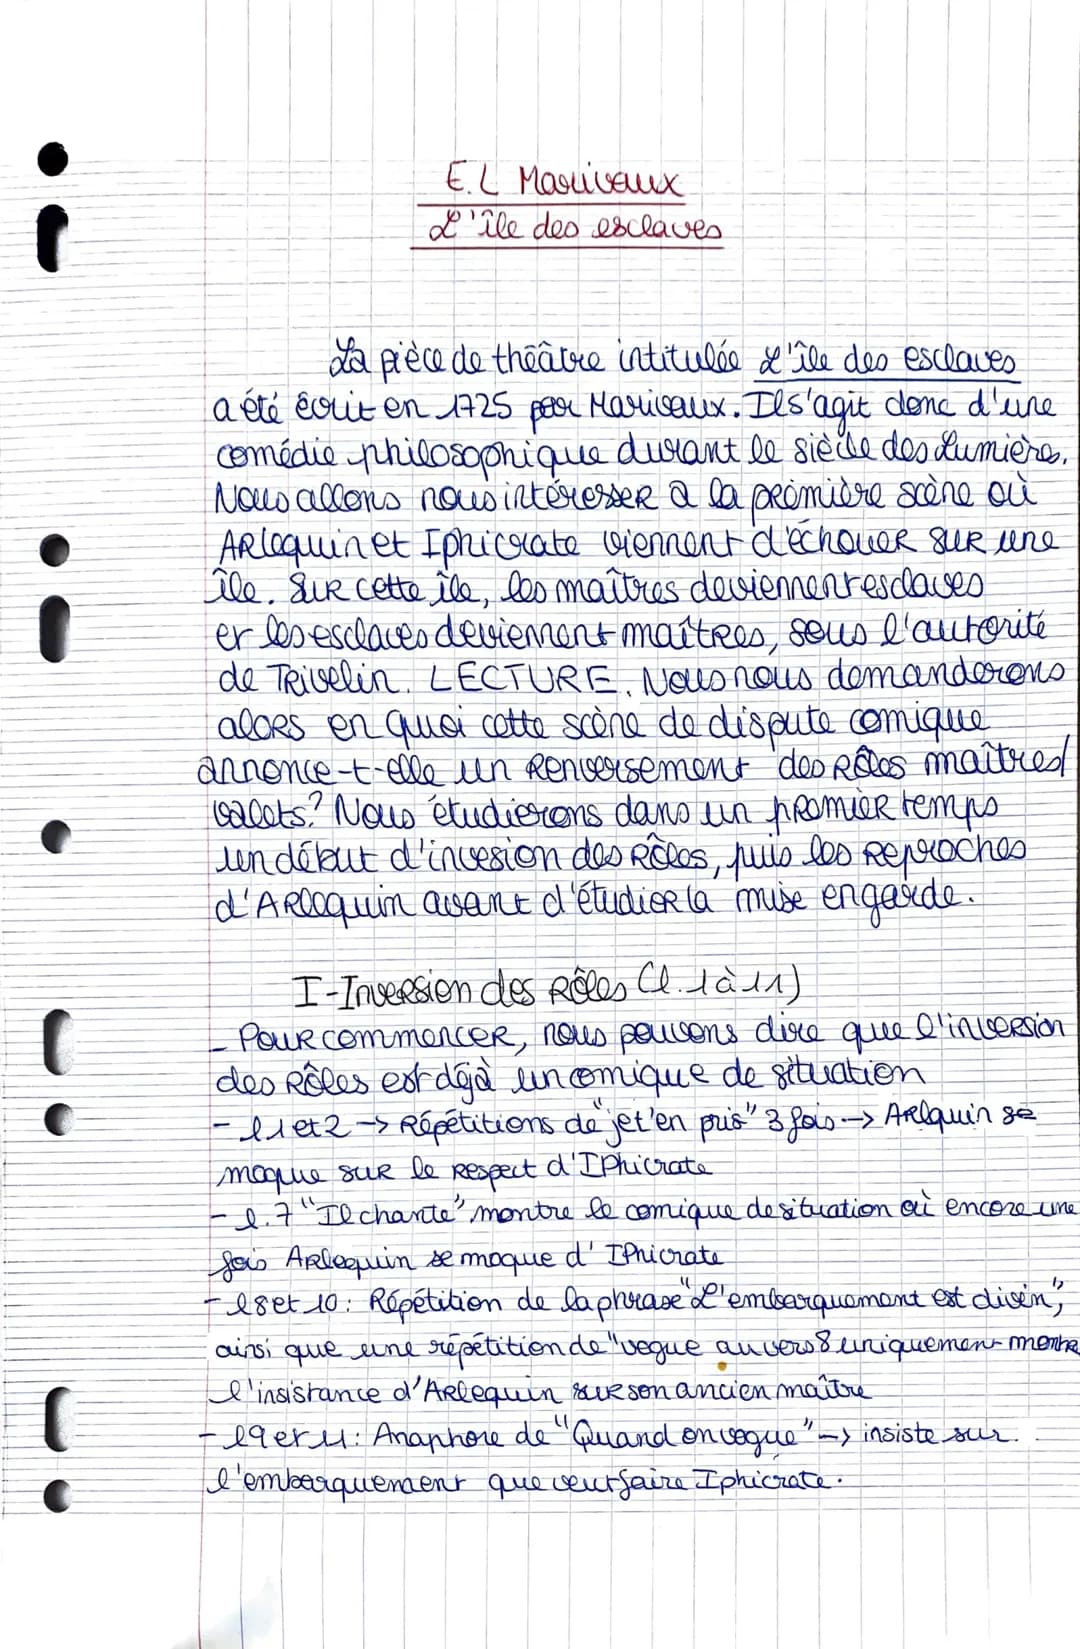 E.L Marivaux
L'île des esclaves
La pièce de théâtre intitulée L'île des esclaves
a été écrit en 1725 par Marivaux. Il s'agit donc d'une
comédie philosophique durant le siècle des Lumière.
Nous allons nous intéresser à la première scène où
Arlequin et Iphicrate viennent d'échouer sur une
île. Sur cette île, les maîtres deviennent esclaves
et les esclaves deviennent maîtres, sous l'autorité
de Trivelin. LECTURE. Nous nous demanderons
alors en quoi cette scène de dispute comique
annonce-t-elle un renversement des rôles maîtres/
valets? Nous étudierons dans un premier temps
un début d'invesion des rôles, puis les reproches
d'Arlequin avant d'étudier la mise en garde.
I-Inversion des rôles (l.1à11)
- Pour commencer, nous pouvons dire que l'inversion
des rôles est déjà un comique de situation
- l1 et 2 -> Répétitions de "je t'en pris" 3 fois -> Arlquin se
moque sur le respect d'Iphicrate
- l.7 "Il chante" montre le comique de situation où encore une
fois Arlequin se moque d'Iphicrate
- l8 et 10: Répétition de la phrase "L'embarquement est divin",
ainsi que une répétition de "vogue au vers 8 uniquement montre
l'insistance d'Arlequin sur son ancien maître
- l9 et 11: Anaphore de "Quand on vogue" -> insiste sur
l'embarquement que veut faire Iphicrate.